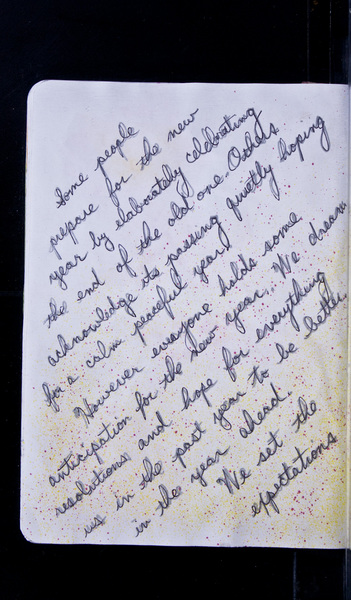 Some people
prepare for the new
year by elaborately celebrating
the end of the old one. Others
acknowledge its passing quietly hoping
for a calm peaceful year.
However everyone holds some
anticipation for the new year. We dream
resolutions and hope for everything
in the past year to be better
in the year ahead.
We set the
expectations